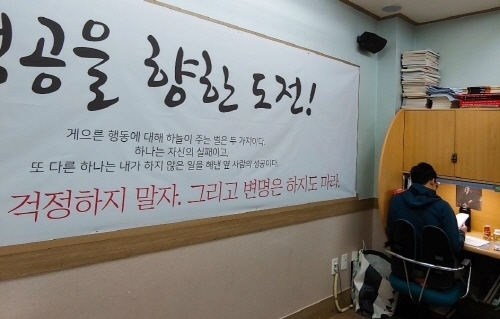 공을 향한 도전!
게으른 행동에 대해 하늘이 주는 벌은 두 가지이다.
하나는 자신의 실패이고,
또 다른 하나는 내가 하지 않은 일을 해낸 옆 사람의 성공이다.
걱정하지 말자. 그리고 변명은 하지도 마라.